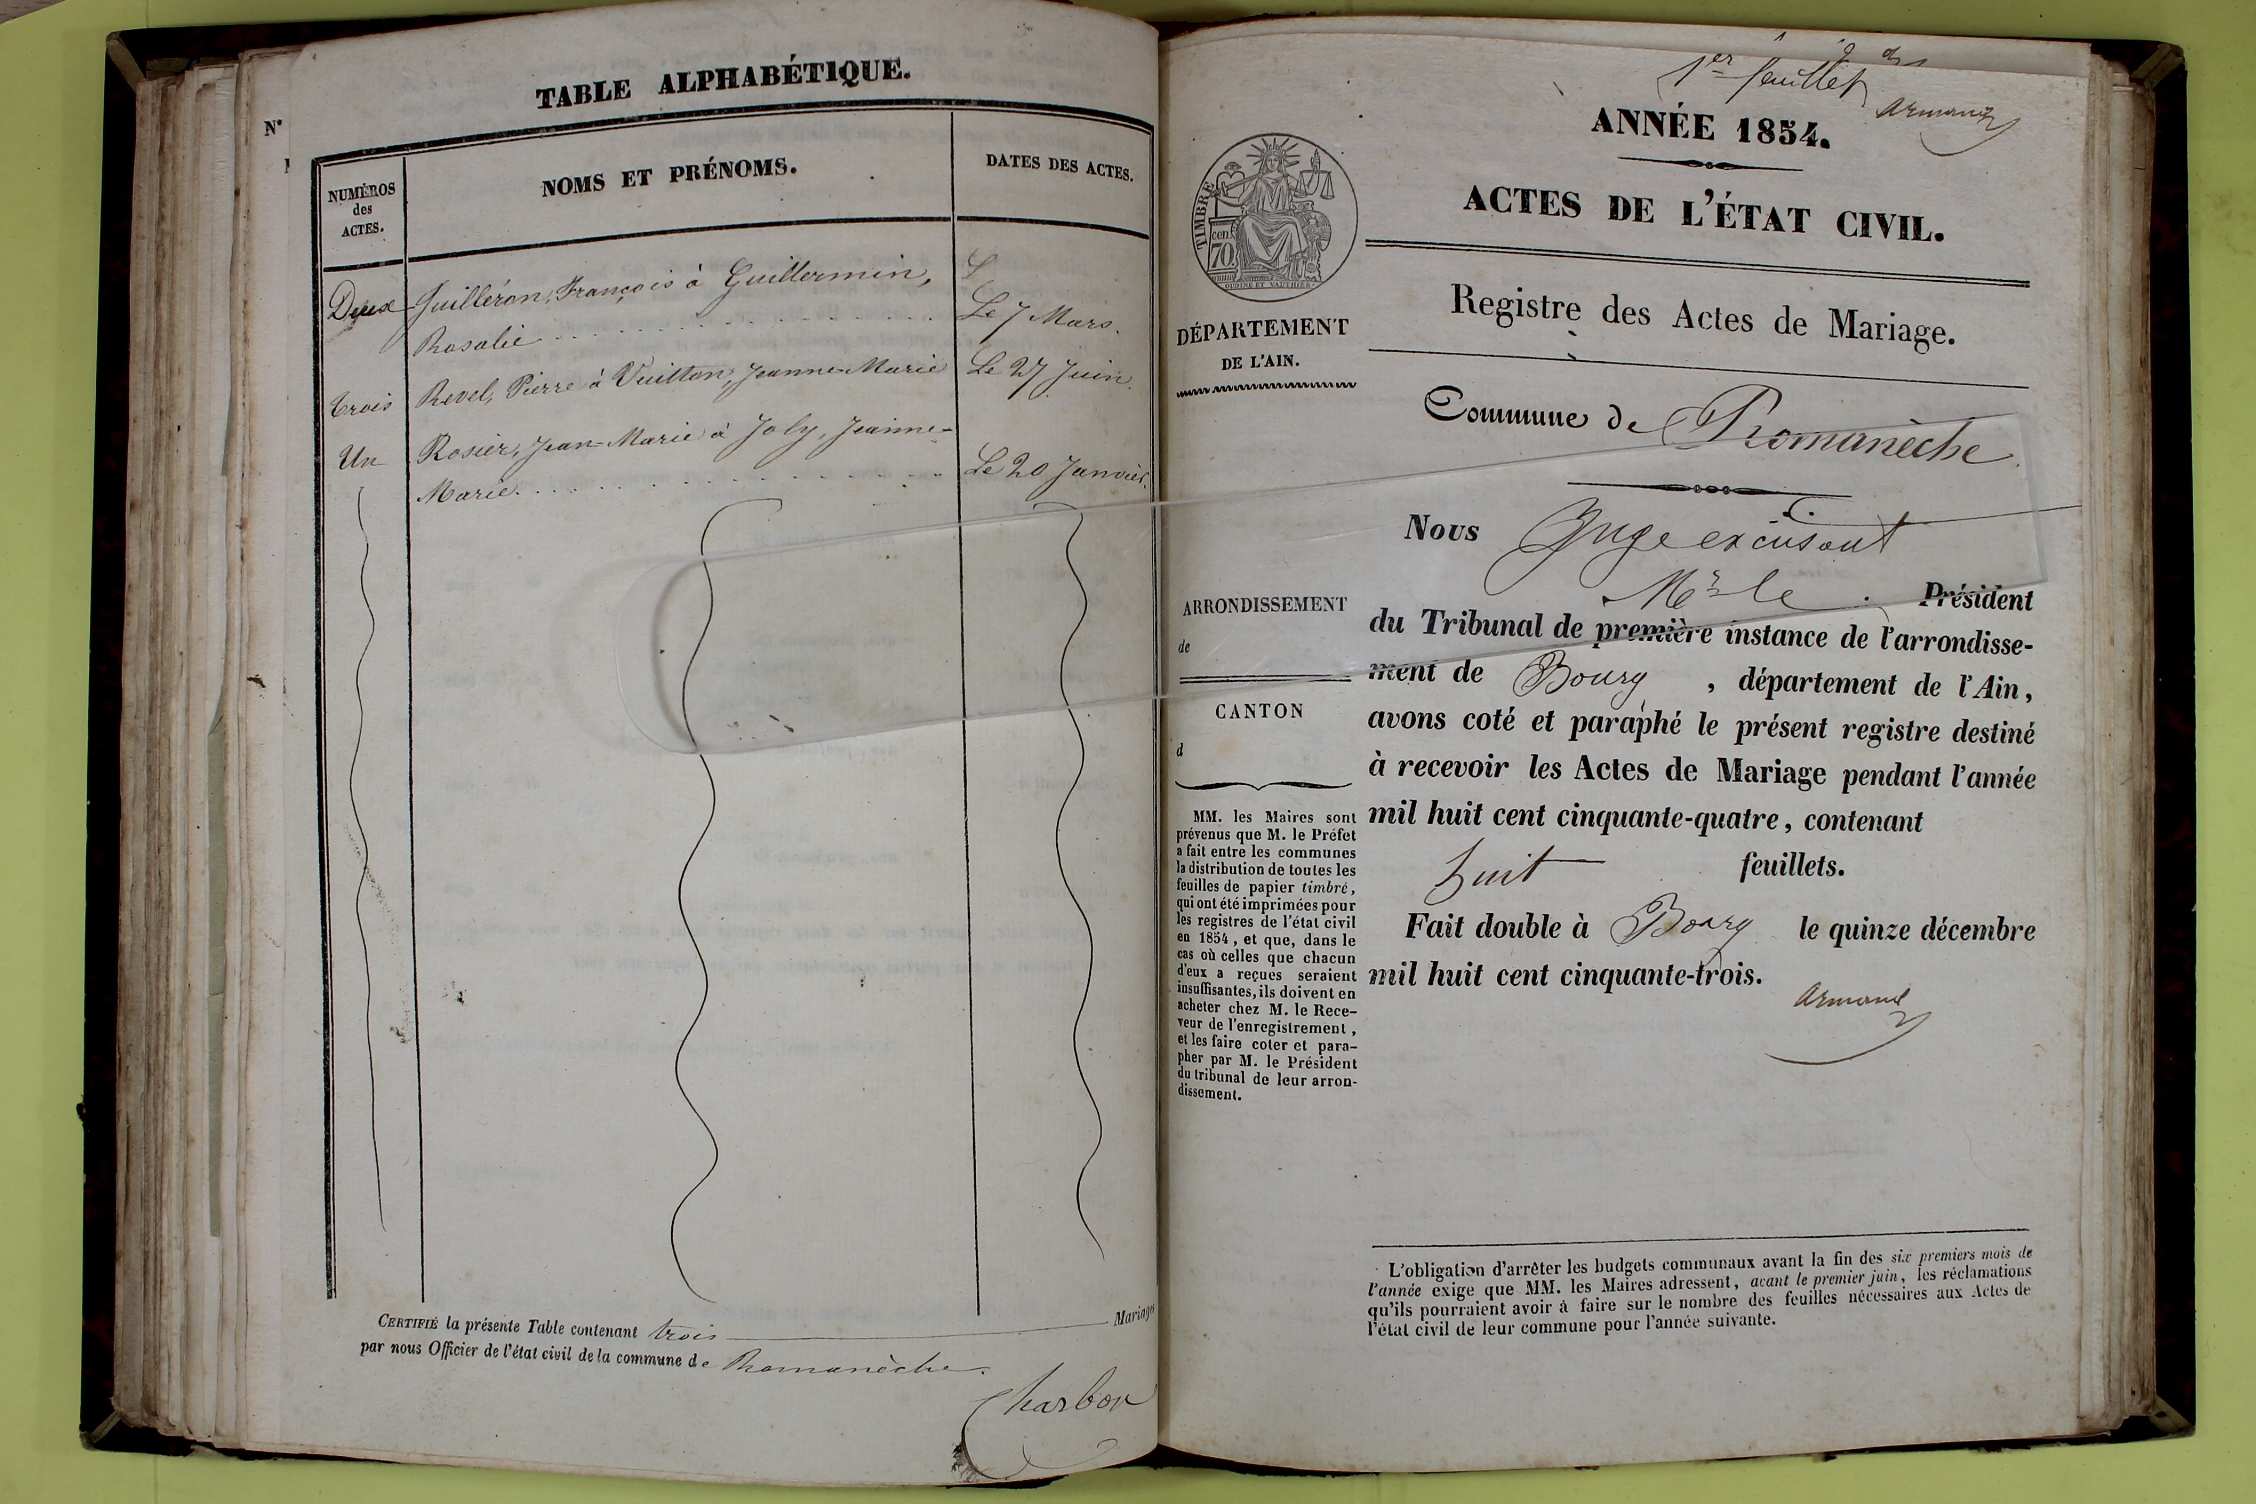 N°
TABLE ALPHABÉTIQUE.
NUMÉROS
des
ACTES.
NOMS ET PRÉNOMS.
DATES DES ACTES.
Deux
Juilléron, François à Guillermin,
Rosalie
Le 7 Mars.
trois
Revel, Pierre à Vuitton, Jeanne-Marie
Le 27 Juin.
Un
Rosier, Jean-Marie à Joly, Jeanne-
Marie.
Le 20 Janvier.
CERTIFIÉ la présente Table contenant trois Mariages
par nous Officier de l'état civil de la commune de Romanèche.
Charbon
1er feuillet
Armand
ANNÉE 1854.
ACTES DE L'ÉTAT CIVIL.
Registre des Actes de Mariage.
TIMBRE
70 cent
DÉPARTEMENT
DE L'AIN.
Commune de Romanèche
ARRONDISSEMENT
de
CANTON
d
MM. les Maires sont
prévenus que M. le Préfet
a fait entre les communes
la distribution de toutes les
feuilles de papier timbré,
qui ont été imprimées pour
les registres de l'état civil
en 1854, et que, dans le
cas où celles que chacun
d'eux a reçues seraient
insuffisantes, ils doivent en
acheter chez M. le Rece-
veur de l'enregistrement,
et les faire coter et para-
pher par M. le Président
du tribunal de leur arron-
dissement.
Nous Juge excusant
Mr le Président
du Tribunal de première instance de l'arrondisse-
ment de Bourg, département de l'Ain,
avons coté et paraphé le présent registre destiné
à recevoir les Actes de Mariage pendant l'année
mil huit cent cinquante-quatre, contenant
huit feuillets.
Fait double à Bourg le quinze décembre
mil huit cent cinquante-trois.
Armand
L'obligation d'arrêter les budgets communaux avant la fin des six premiers mois de
l'année exige que MM. les Maires adressent, avant le premier juin, les réclamations
qu'ils pourraient avoir à faire sur le nombre des feuilles nécessaires aux Actes de
l'état civil de leur commune pour l'année suivante.